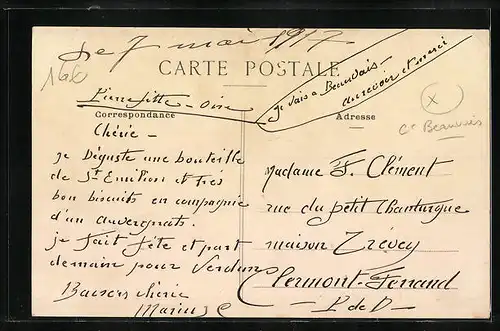 Le 7 mai 1917
166
CARTE POSTALE
Pierrefitte - Oise
je vais a Beauvais -
au revoir et merci
Correspondance
Adresse
X
Ce Beauvais
Chérie -
je Déguste une bouteille
de St Emilion et très
bon biscuits en compagnie
d'un auvergnats.
je fait fête et part
demain pour Verdun
Baisers chérie
Marius C
Madame F. Clément
rue du petit Chanturgue
maison Trévey
Clermont-Ferrand
P. de D-